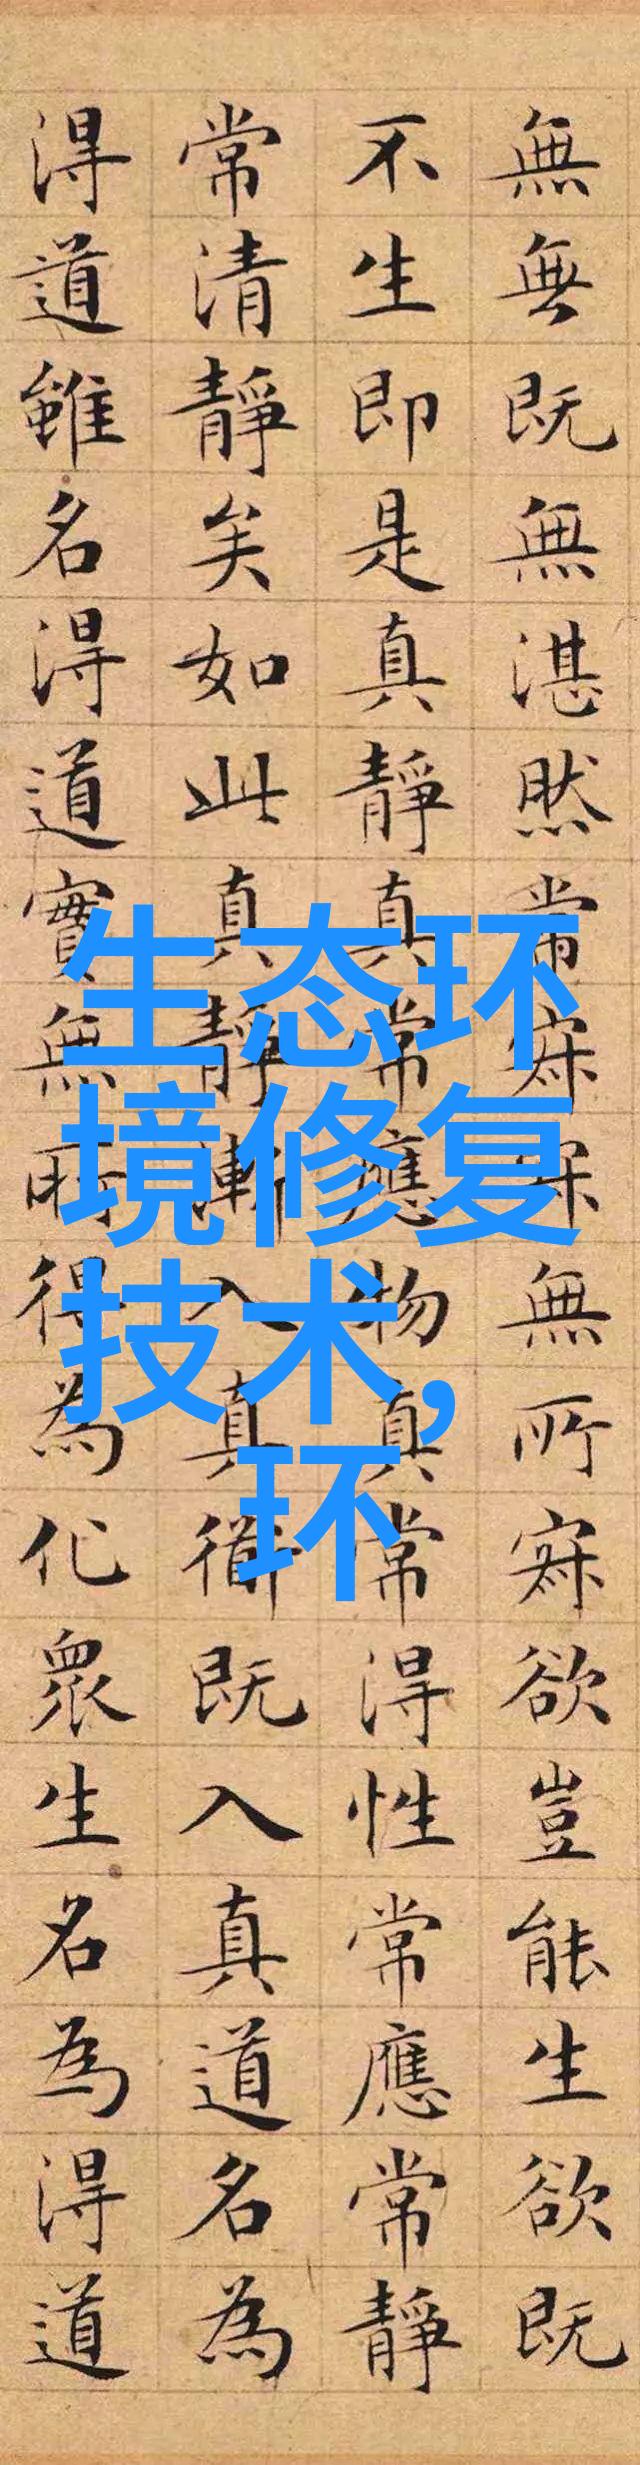 無無既無湛然常寂寂無所寂欲豈能生欲既
不生即是真靜真常應物真常得性常應常靜
常清靜矣如此真靜漸入真道既入真道名為
得道雖名得道實無所得為化眾生名為得道
生态环
境修复
技术,
环